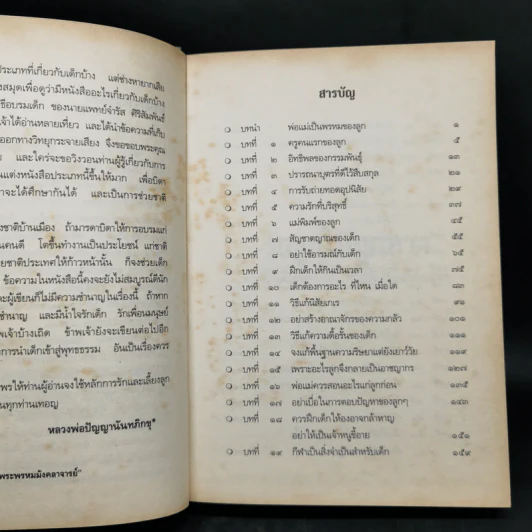 ประเภทที่เกี่ยวกับเด็กบ้าง แต่ช่างหายากเสีย
สมุดเพื่อดูว่ามีหนังสืออะไรเกี่ยวกับเด็กบ้าง
ธีอบรมเด็ก ของนายแพทย์จำรัส ศิริสัมพันธ์
เจ้าได้อ่านหลายเที่ยว และได้นำข้อความที่เก็บ
ออกทางวิทยุกระจายเสียง จึงขอขอบพระคุณ
และใคร่จะขอวิงวอนท่านผู้รู้เกี่ยวกับการ
แต่งหนังสือประเภทนี้ขึ้นให้มาก เพื่อบิดา
าจะได้ศึกษากันได้ และเป็นการช่วยชาติ
งชาติบ้านเมือง ถ้ามารดาบิดาให้การอบรมแก่
นคนดี โตขึ้นทำงานเป็นประโยชน์ แก่ชาติ
ยชาติประเทศให้ก้าวหน้านั้น ก็จงช่วยเด็ก
ข้อความในหนังสือนี้คงจะยังไม่สมบูรณ์ดีนัก
ะผู้เขียนก็ไม่มีความชำนาญในเรื่องนี้ ถ้าหาก
ชำนาญ และมีน้ำใจรักเด็ก รักเพื่อนมนุษย์
พเจ้าบ้างเถิด ข้าพเจ้ายังจะเขียนต่อไปอีก
การนำเด็กเข้าสู่พุทธธรรม อันเป็นเรื่องควร
พรให้ท่านผู้อ่านจงใช้หลักการรักและเลี้ยงลูก
นทุกท่านเทอญ
หลวงพ่อปัญญานันทภิกขุ*
พระพรหมมังคลาจารย์"
สารบัญ
บทนำ พ่อแม่เป็นพรหมของลูก ๑
บทที่ ๑ ครูคนแรกของลูก ๕
บทที่ ๒ อิทธิพลของกรรมพันธุ์ ๑๓
บทที่ ๓ ปรารถนาบุตรที่ดีไว้สืบสกุล ๒๑
บทที่ ๔ การรับถ่ายทอดอุปนิสัย ๒๙
บทที่ ๕ ความรักที่บริสุทธิ์ ๓๗
บทที่ ๖ แม่พิมพ์ของลูก ๔๕
บทที่ ๗ สัญชาตญาณของเด็ก ๕๕
บทที่ ๘ อย่าใช้อารมณ์กับเด็ก ๖๕
บทที่ ๙ ฝึกเด็กให้กินเป็นเวลา ๗๕
บทที่ ๑๐ เด็กต้องการอะไร ที่ไหน เมื่อใด ๘๓
บทที่ ๑๑ วิธีแก้นิสัยเกเร ๙๑
บทที่ ๑๒ อย่าสร้างอาณาจักรของความกลัว ๑๐๑
บทที่ ๑๓ วิธีแก้ความดื้อรั้นของเด็ก ๑๑๑
บทที่ ๑๔ จงแก้พื้นฐานความริษยาแต่ยังเยาว์วัย ๑๑๙
บทที่ ๑๕ เพราะอะไรลูกจึงกลายเป็นอาชญากร ๑๒๗
บทที่ ๑๖ พ่อแม่ควรสอนอะไรแก่ลูกก่อน ๑๓๕
บทที่ ๑๗ อย่าเบื่อในการตอบปัญหาของลูกๆ ๑๔๓
บทที่ ๑๘ ควรฝึกเด็กให้องอาจกล้าหาญ
อย่าให้เป็นเจ้าหนูขี้อาย ๑๕๑
บทที่ ๑๙ กีฬาเป็นสิ่งจำเป็นสำหรับเด็ก ๑๕๙